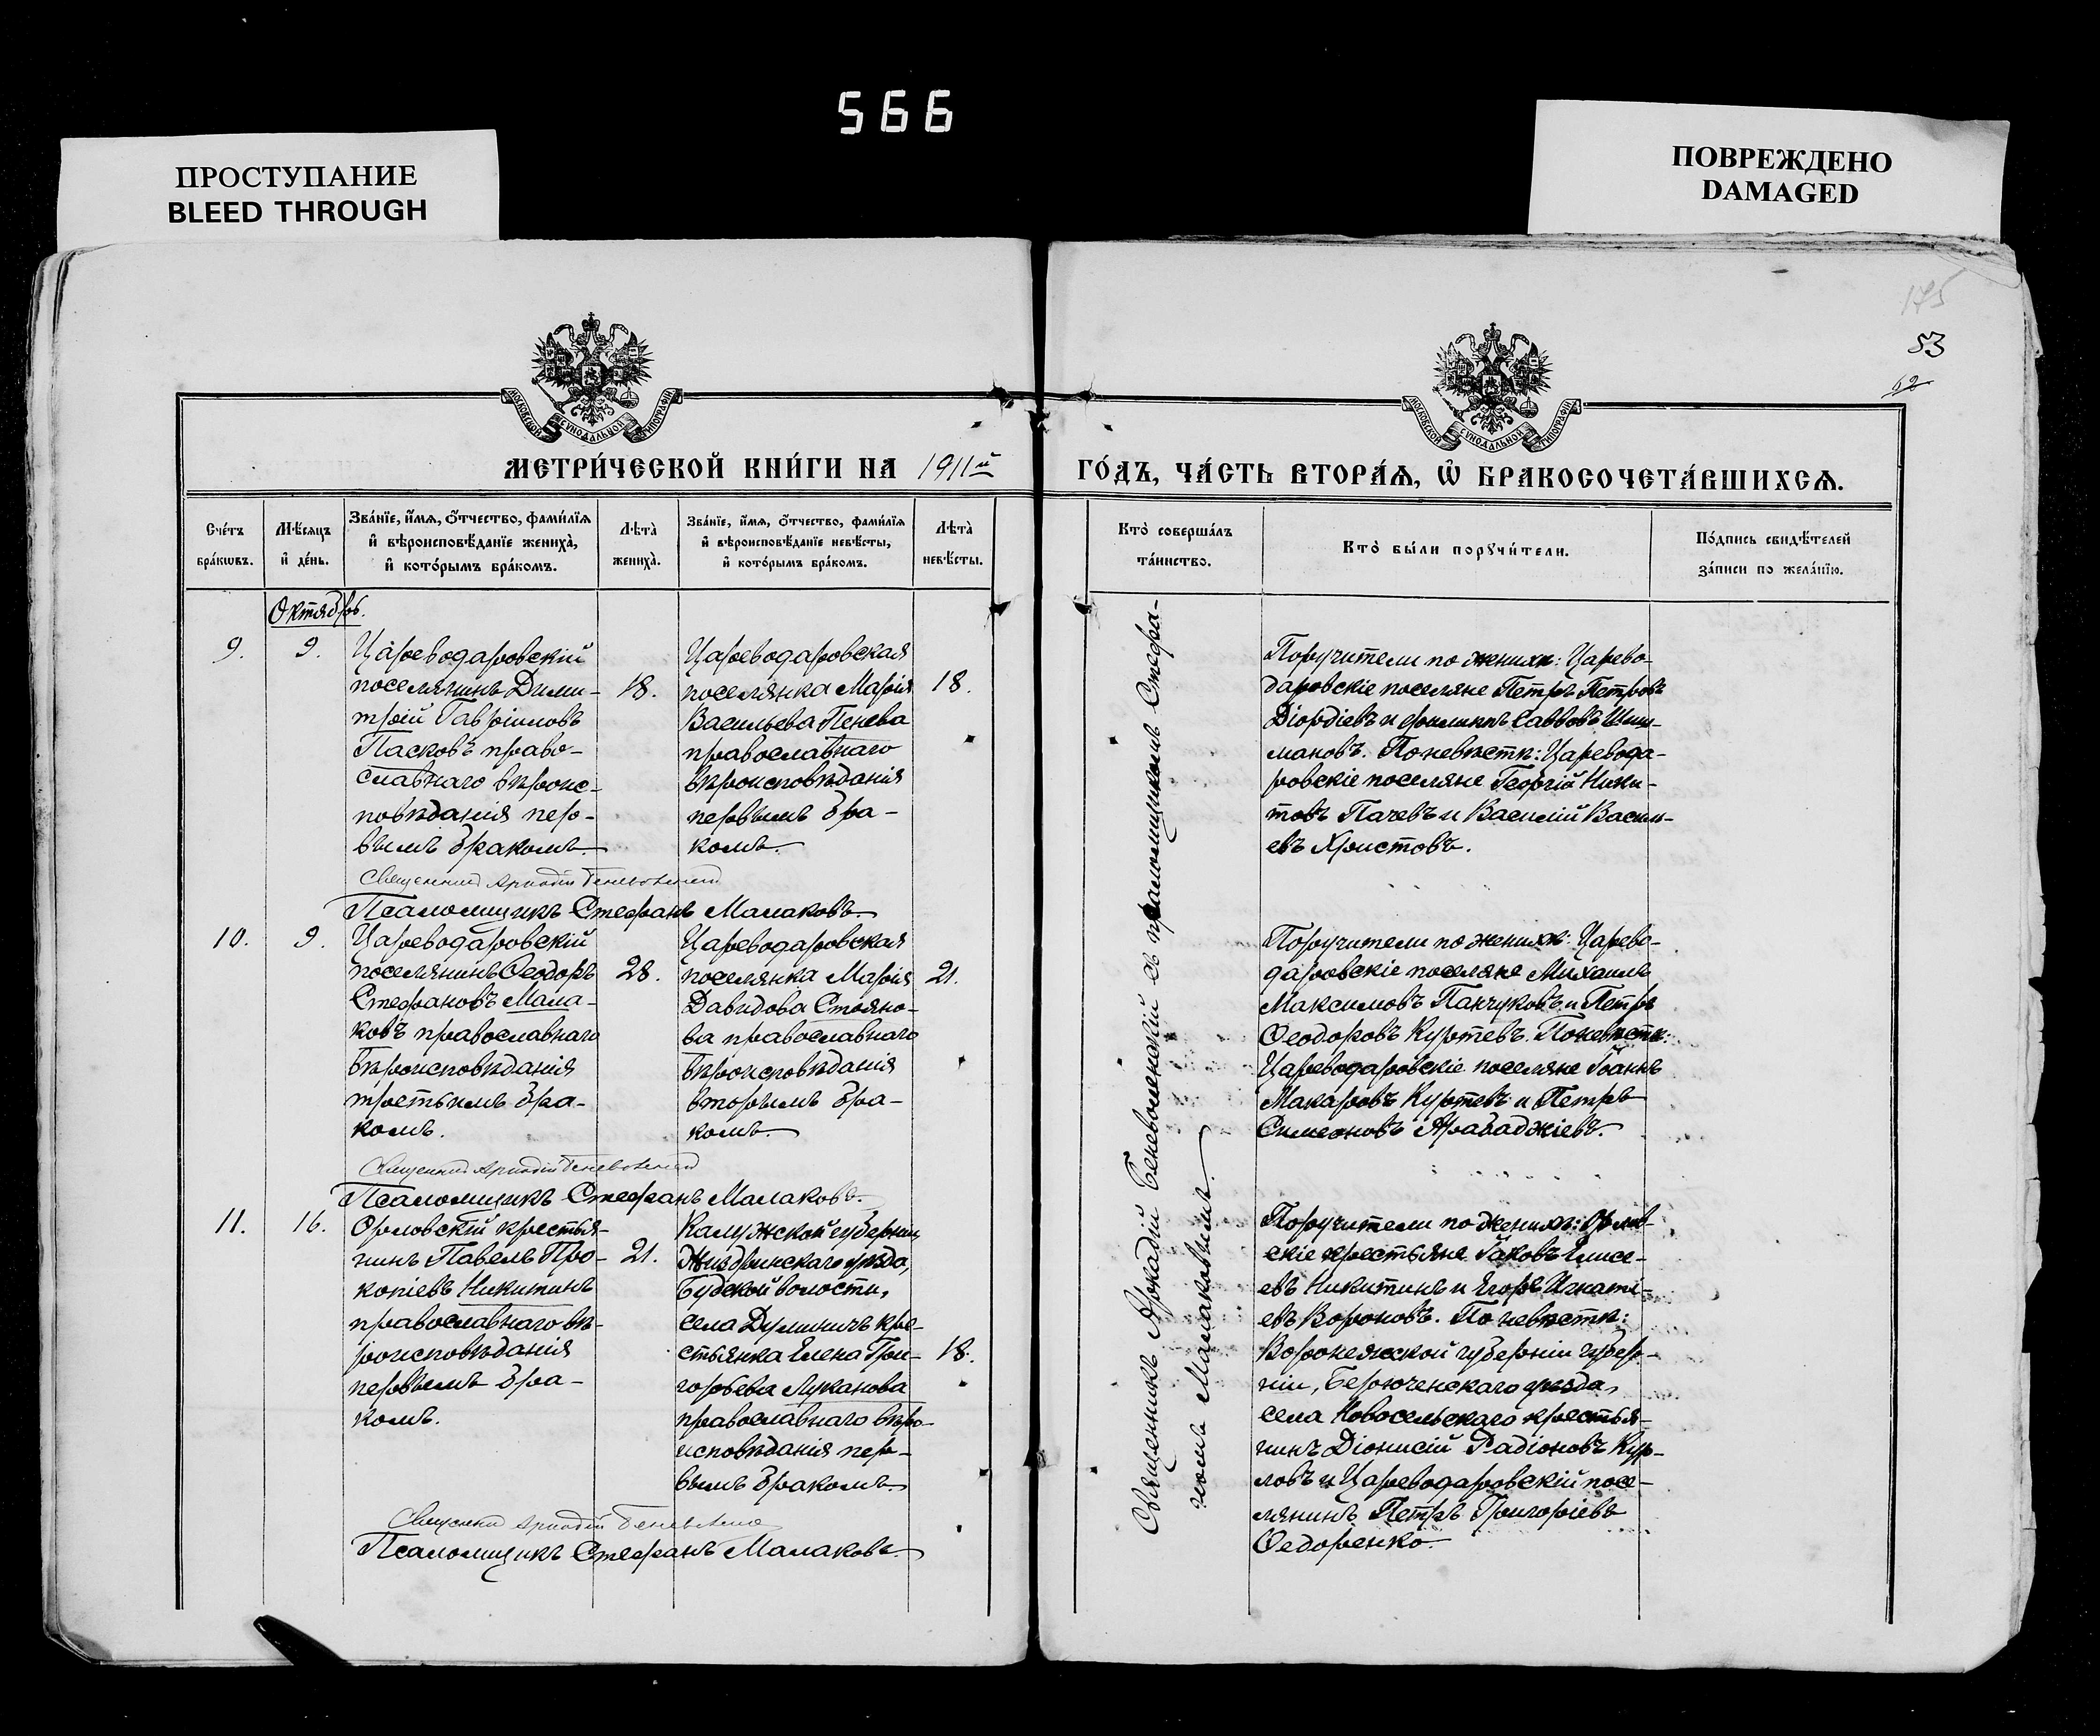 566
ПРОСТУПАНИЕ
BLEED THROUGH
ПОВРЕЖДЕНО
DAMAGED
175
53
62
МОСКОВСКОЙ СѴНОДАЛЬНОЙ ТИПОГРАФІИ
МОСКОВСКОЙ СѴНОДАЛЬНОЙ ТИПОГРАФІИ
МЕТРИ́ЧЕСКОЙ КНИ́ГИ НА 1911й
ГО́ДЪ, ЧА́СТЬ ВТОРА́Ѧ, Ѽ БРАКОСОЧЕТА́ВШИХСѦ.
Сче́тъ
бра́кѡвъ.
Мѣ́сяцъ
и҆ де́нь.
Зва́нїе, и҆́мѧ, ѻ҆́тчество, фами́лїѧ
и҆ вѣроисповѣ́данїе жениха̀,
и҆ кото́рымъ бра́комъ.
Лѣта̀
жениха̀.
Зва́нїе, и҆́мѧ, ѻ҆́тчество, фами́лїѧ
и҆ вѣроисповѣ́данїе невѣ́сты,
и҆ кото́рымъ бра́комъ.
Лѣта̀
невѣ́сты.
Кто̀ соверша́лъ
та́инство.
Кто̀ бы́ли порꙋчи́тели.
По́дпись свидѣ́телей
за́писи по жела́нїю.
Октябрь.
9.
9.
Цареводаровскій
поселянинъ Дими-
трій Гавріиловъ
Пасковъ право-
славнаго вѣроис-
повѣданія пер-
вымъ бракомъ.
18.
Цареводаровская
поселянка Марія
Васильева Пенева
православнаго
вѣроисповѣданія
первымъ бра-
комъ.
18.
Поручители по женихѣ: Царево-
даровскіе поселяне Петръ Петровъ
Діордіевъ и Филиппъ Саввовъ Шиш-
мановъ. По невѣстѣ: Цареводa-
ровскіе поселяне Георгій Ники-
товъ Пачевъ и Василій Васил-
евъ Христовъ.
Священник Аркадій Беневоленскій
Псаломщикъ Стефанъ Малаковъ.
10.
9.
Цареводаровскій
поселянинъ Ѳеодоръ
Стефановъ Мала-
ковъ православнаго
вѣроисповѣданія
третьимъ бра-
комъ.
28.
Цареводаровская
поселянка Марія
Давидова Стояно-
ва православнаго
вѣроисповѣданія
вторымъ бра-
комъ.
21.
Поручители по женихѣ: Царево-
даровскіе поселяне Михаилъ
Максимовъ Панчуковъ и Петръ
Ѳеодоровъ Куртевъ. По невѣстѣ:
Цареводаровскіе поселяне Іоаннъ
Макаровъ Куртевъ и Петръ
Симеоновъ Арабаджіевъ.
Священник Аркадій Беневоленскій
Псаломщикъ Стефанъ Малаковъ.
11.
16.
Орловскій крестья-
нинъ Павелъ Про-
копіевъ Никитинъ
православнаго вѣ-
роисповѣданія
первымъ бра-
комъ.
21.
Калужской губерніи
Жиздринскаго уѣзда,
Будской волости,
села Думиничъ кре-
стьянка Елена Гри-
горьева Луканова
православнаго вѣро-
исповѣданія пер-
вымъ бракомъ.
18.
Поручители по женихѣ: Орлов-
скіе крестьяне Іаковъ Елисе-
евъ Никитинъ и Егоръ Игнаті-
евъ Вороновъ. По невѣстѣ:
Воронежской губерніи губер-
ніи, Бирюченскаго уѣзда,
села Новосельскаго крестья-
нинъ Діонисій Радіоновъ Кур-
ловъ и Цареводаровскій посе-
лянинъ Петръ Григоріевъ
Ѳедоренко.
Священник Аркадій Беневоленскій
Псаломщикъ Стефанъ Малаковъ.
Священникъ Аркадій Беневоленскій съ псаломщикомъ Стефа-
номъ Малаковымъ.